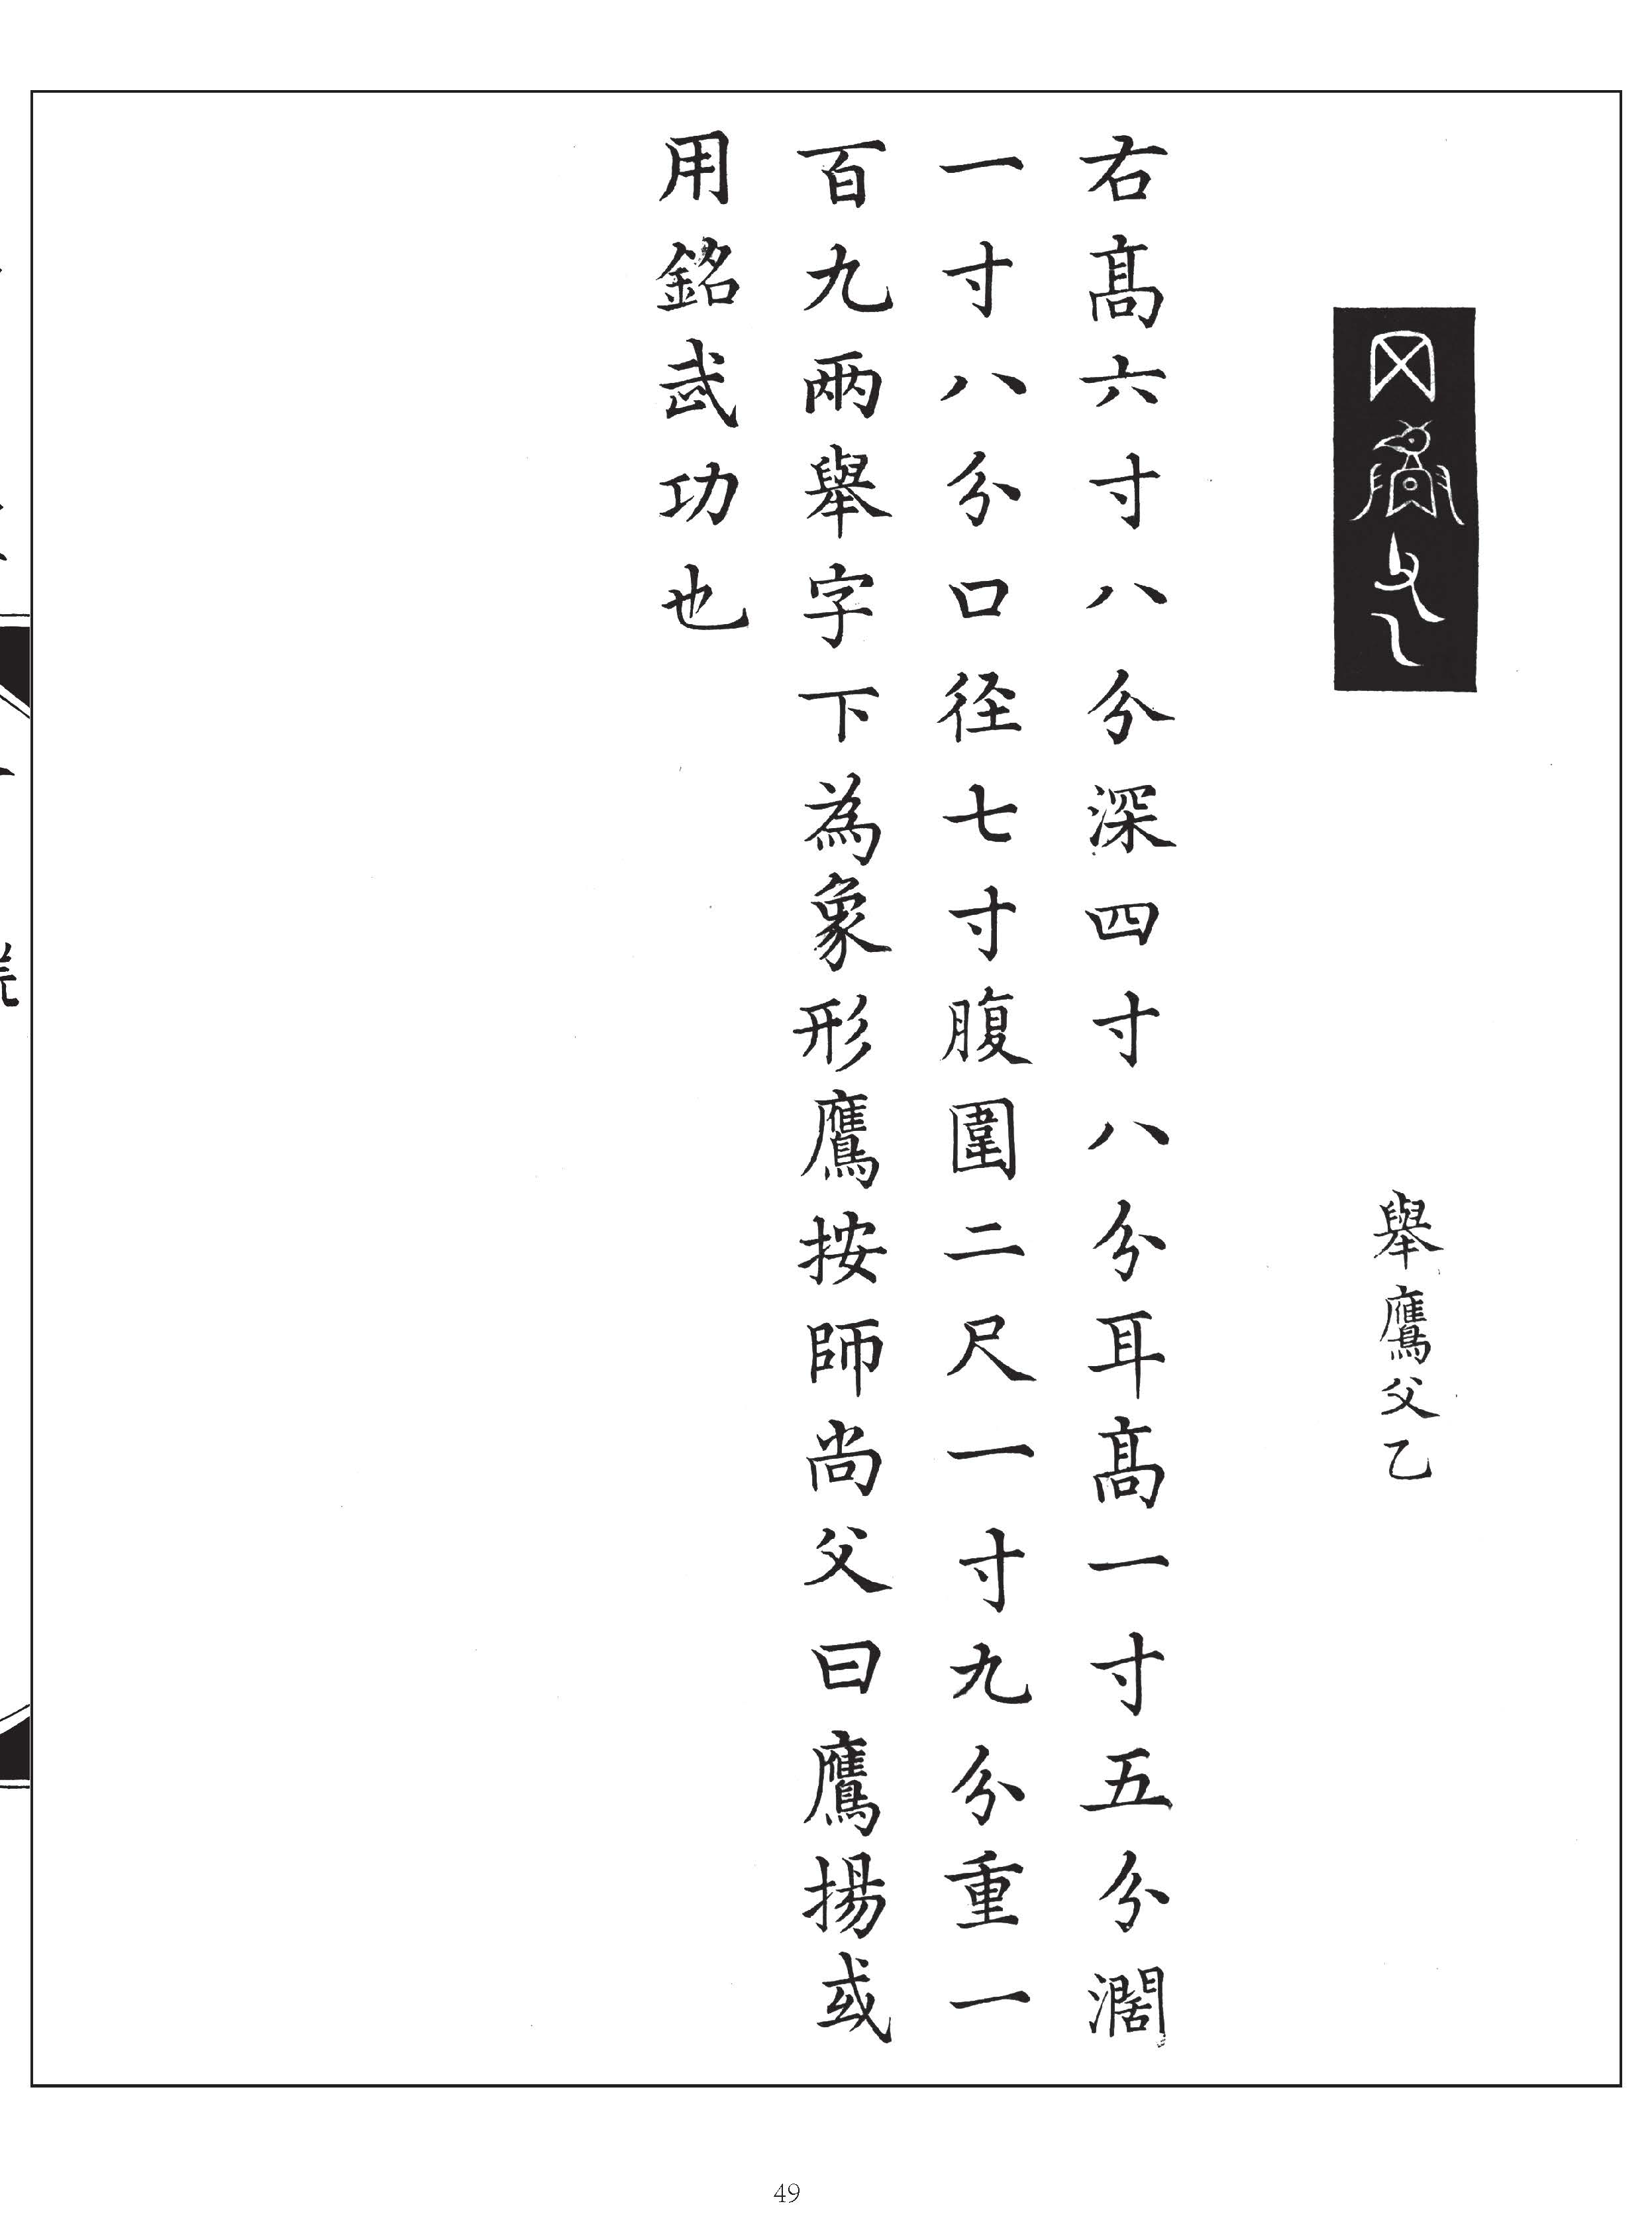 舉鷹父乙
右髙六寸八分深四寸八分耳髙一寸五分濶
一寸八分口径七寸腹圍二尺一寸九分重一
百九兩舉字下為象形鷹按師尚父曰鷹揚或
用銘武功也
49